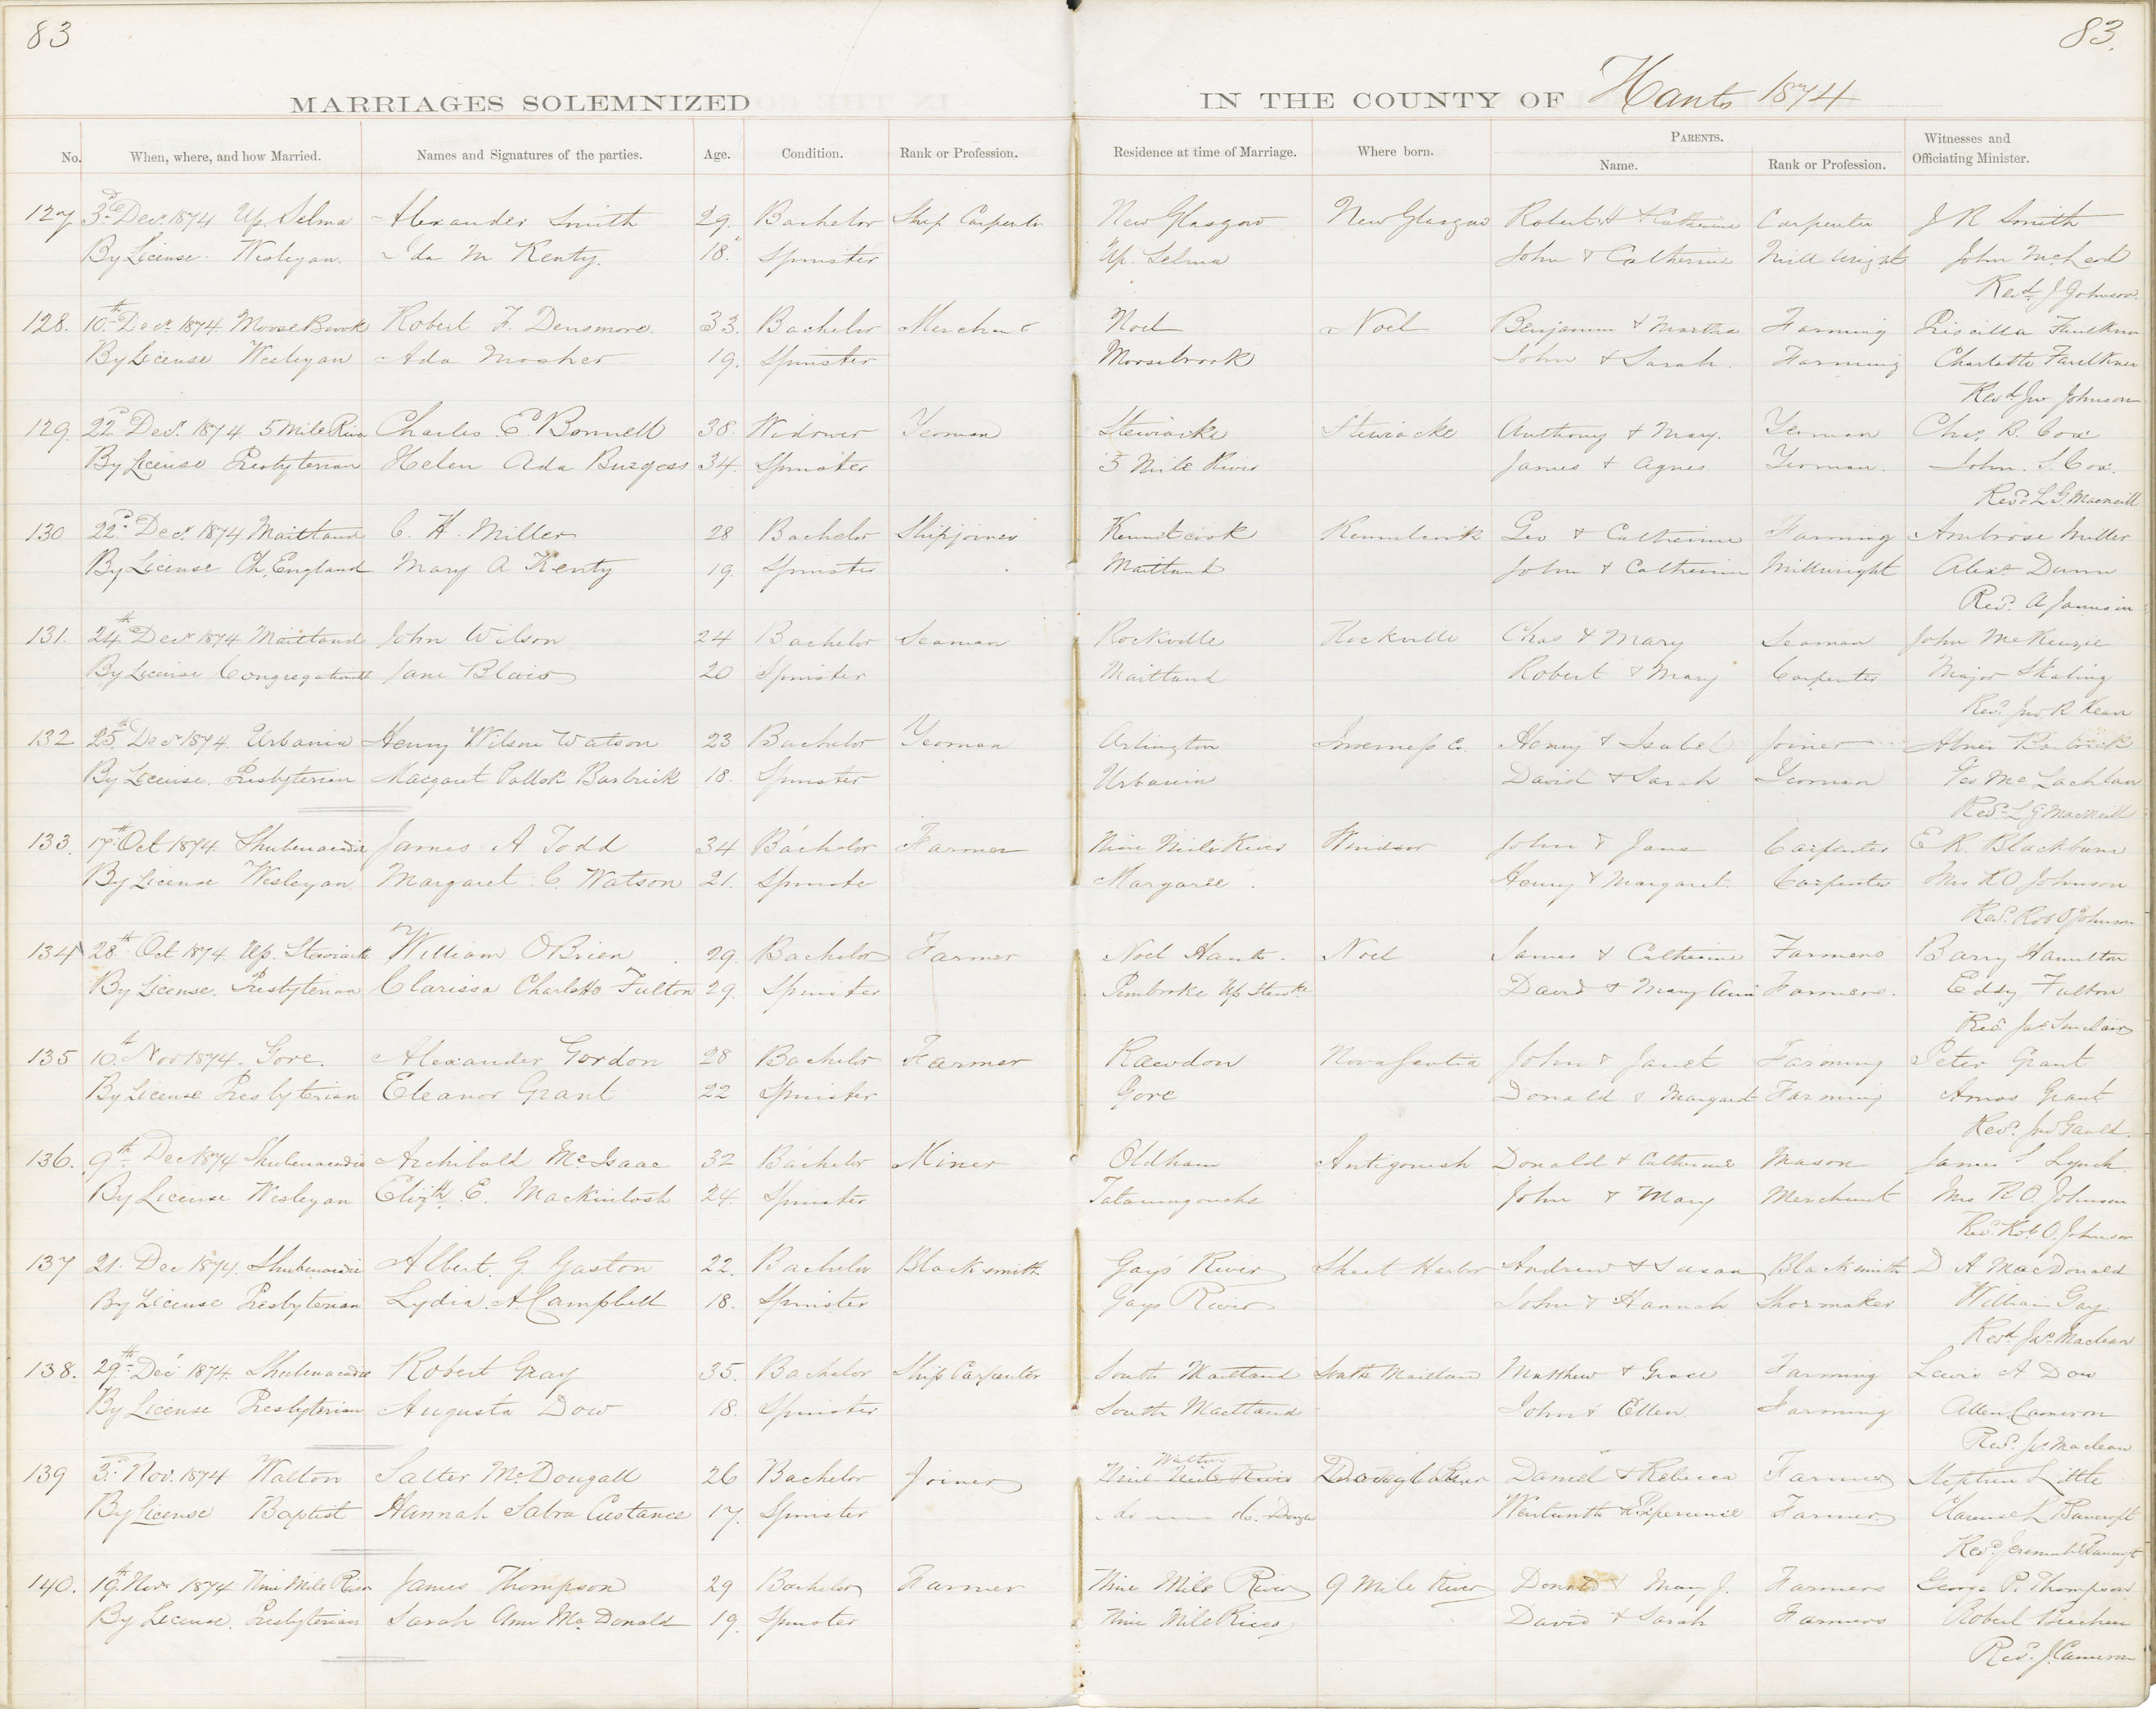 83
83.
MARRIAGES SOLEMNIZED
IN THE COUNTY OF Hants 1874
No. When, where, and how Married. Names and Signatures of the parties. Age. Condition. Rank or Profession. Residence at time of Marriage. Where born. PARENTS. Name. Rank or Profession. Witnesses and Officiating Minister.
127 3d Decr 1874 Up. Selma Alexander Smith 29. Bachelor Ship Carpenter New Glasgow New Glasgow Robert H & Catherine Carpenter J R Smith
By License. Wesleyan. Ida M Kenty. 18. Spinster Up. Selma John & Catherine Mill Wright John McLeod
Revd J Johnson
128. 10th Decr 1874 Moose Brook Robert F. Densmore. 33. Bachelor Merchant Noel Noel Benjamin & Martha Farming Priscilla Faulkner
By License Wesleyan Ada Mosher 19. Spinster Moosebrook John & Sarah. Farming Charlotte Faulkner
Revd Jno Johnson
129. 22d Decr 1874 5 Mile River Charles E. Bonnell 38. Widower Yeoman Stewiacke Stewiacke Anthony & Mary. Yeoman Chas. B. Cox
By License Presbyterian Helen Ada Burgess 34. Spinster 5 Mile River James & Agnes. Yeoman. John. S. Cox.
Revd L G. Macneill
130 22d Decr 1874 Maitland C. H. Miller 28 Bachelor Shipjoiner Kennetcook Kennetcook Geo & Catherine Farming Ambrose Miller
By License Ch. England Mary A Kenty 19. Spinster Maitland John & Catherine Millwright Alexr Dunn
Revd A Jamison
131. 24th Decr 1874 Maitland John Wilson 24 Bachelor Seaman Rockville Rockville Chas & Mary Seaman John McKenzie
By License Congregational Jane Blair 20 Spinster Maitland Robert & Mary Carpenter Major Skaling
Revd Jno. R Kean
132 25th Decr 1874. Urbania Henry Wilson Watson 23 Bachelor Yeoman Arlington Inverness C. Henry & Isabel Joiner Abner Barbrick
By License. Presbyterian Margaret Pollok Barbrick 18. Spinster Urbania David & Sarah Yeoman Geo McLachlan
Revd L G Macneill
133. 17th Oct 1874. Shubenacadie James A Todd 34 Bachelor Farmer Nine Mile River Windsor John & Jane Carpenter E R. Blackburn
By License Wesleyan Margaret C. Watson 21. Spinster Margaree. Henry & Margaret. Carpenter Mrs R O Johnson
Revd. Rob O Johnson
134 28th Oct 1874. Up. Stewiacke William OBrien 29. Bachelor Farmer Noel Hants. Noel James & Catherine Farmers Barry Hamilton
By License. Presbyterian Clarissa Charlotte Fulton 29. Spinster Pembroke Up Stewke David & Mary Ann Farmers. Eddy Fulton
Revd. Jas Sinclair
135 10th Nov 1874. Gore. Alexander Gordon 28 Bachelor Farmer Rawdon Nova Scotia John & Janet Farming Peter Grant
By License Presbyterian Eleanor Grant 22 Spinster Gore Donald & Margaret Farming Amos Grant
Revd. Jno Gauld.
136. 9th Dec 1874 Shubenacadie Archibald McIsaac 32 Bachelor Miner Oldham Antigonish Donald & Catherine Mason James S Lynch.
By License Wesleyan Elizth. E. Mackintosh 24. Spinster Tatamagouche John & Mary Merchant Mrs R O. Johnson
Revd Rob O. Johnson
137 21. Dec 1874. Shubenacadie Albert. G Gaston 22. Bachelor Blacksmith Gays River Sheet Harbor Andrew & Susan Blacksmith D A MacDonald
By License Presbyterian Lydia. A Campbell 18. Spinster Gays River John & Hannah Shoemaker William Gay.
Revd Jas Maclean
138. 29th Dec 1874. Shubenacadie Robert Gray 35. Bachelor Ship Carpenter South Maitland South Maitland Matthew & Grace Farming Lewis A Dow
By License Presbyterian Augusta Dow 18. Spinster South Maitland John & Ellen. Farming Allen Cameron
Revd. Jas Maclean
Walton
139 3d. Nov. 1874 Walton Salter McDougall 26 Bachelor Joiner Nine Mile River Daniel & Rebecca Farmer Stephen Little
By License Baptist Hannah Sabra Custance 17. Spinster do do. Wentworth & Experience Farmer. Clarence L Bancroft
Revd Jeremiah Bancroft
140. 19th. Novr 1874 Nine Mile River James Thompson 29 Bachelor Farmer Nine Mile River 9 Mile River Donald & Mary J. Farmers George P. Thompson
By License. Presbyterian Sarah Ann McDonald 19. Spinster Nine Mile River David & Sarah Farmers Robert
Revd. J. Cameron